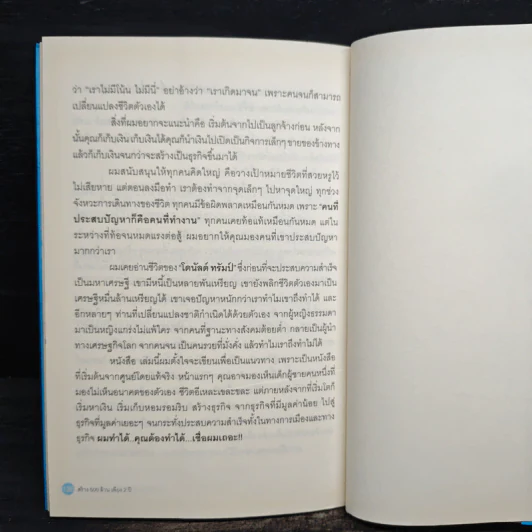 ว่า “เราไม่มีโน้น ไม่มีนี่” อย่าอ้างว่า “เราเกิดมาจน” เพราะคนจนก็สามารถ
เปลี่ยนแปลงชีวิตตัวเองได้
สิ่งที่ผมอยากจะแนะนำคือ เริ่มต้นจากไปเป็นลูกจ้างก่อน หลังจาก
นั้นคุณก็เก็บเงิน เก็บเงินได้คุณก็นำเงินไปเปิดเป็นกิจการเล็กๆ ขายของข้างทาง
แล้วก็เก็บเงินจนกว่าจะสร้างเป็นธุรกิจขึ้นมาได้
ผมสนับสนุนให้ทุกคนคิดใหญ่ คือวางเป้าหมายชีวิตที่สวยหรูไว้
ไม่เสียหาย แต่ตอนลงมือทำ เราต้องทำจากจุดเล็กๆ ไปหาจุดใหญ่ ทุกช่วง
จังหวะการเดินทางของชีวิต ทุกคนมีข้อผิดพลาดเหมือนกันหมด เพราะ “คนที่
ประสบปัญหาก็คือคนที่ทำงาน” ทุกคนเคยท้อแท้เหมือนกันหมด แต่ใน
ระหว่างที่ท้อจนหมดแรงต่อสู้ ผมอยากให้คุณมองคนที่เขาประสบปัญหา
มากกว่าเรา
ผมเคยอ่านชีวิตของ “โดนัลด์ ทรัมป์” ซึ่งก่อนที่จะประสบความสำเร็จ
เป็นมหาเศรษฐี เขามีหนี้เป็นหลายพันเหรียญ เขายังพลิกชีวิตตัวเองมาเป็น
เศรษฐีหมื่นล้านเหรียญได้ เขาเจอปัญหาหนักกว่าเราทำไมเขาถึงทำได้ และ
อีกหลายๆ ท่านที่เปลี่ยนแปลงชาติกำเนิดได้ด้วยตัวเอง จากผู้หญิงธรรมดา
มาเป็นหญิงแกร่งไม่แพ้ใคร จากคนที่ฐานะทางสังคมต้อยต่ำ กลายเป็นผู้นำ
ทางเศรษฐกิจโลก จากคนจน เป็นคนรวยที่มั่งคั่ง แล้วทำไมเราถึงทำไม่ได้
หนังสือ เล่มนี้ผมตั้งใจจะเขียนเพื่อเป็นแนวทาง เพราะเป็นหนังสือ
ที่เริ่มต้นจากศูนย์โดยแท้จริง หน้าแรกๆ คุณอาจมองเห็นเด็กผู้ชายคนหนึ่งที่
มองไม่เห็นอนาคตของตัวเอง ชีวิตอีเหละเขละขละ แต่ภายหลังจากที่เริ่มโตก็
เริ่มหาเงิน เริ่มเก็บหอมรอมริบ สร้างธุรกิจ จากธุรกิจที่มีมูลค่าน้อย ไปสู่
ธุรกิจที่มูลค่าเยอะๆ จนกระทั่งประสบความสำเร็จทั้งในทางการเมืองและทาง
ธุรกิจ ผมทำได้..คุณต้องทำได้...เชื่อผมเถอะ!!